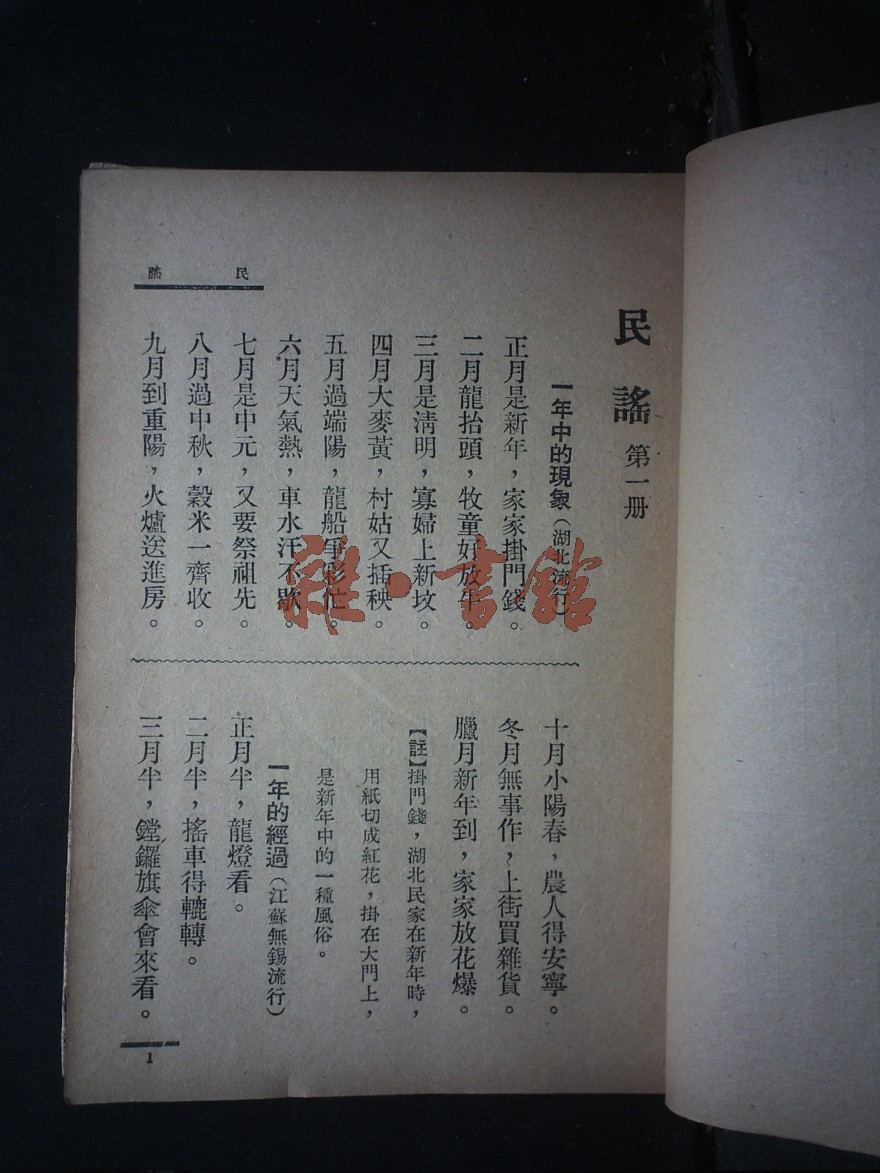 民謠 第一册
一年中的現象（湖北流行）
正月是新年，家家掛門錢。
二月龍抬頭，牧童好放牛。
三月是清明，寡婦上新坟。
四月大麥黃，村姑又插秧。
五月過端陽，龍船爭彩忙。
六月天氣熱，車水汗不歇。
七月是中元，又要祭祖先。
八月過中秋，穀米一齊收。
九月到重陽，火爐送進房。
十月小陽春，農人得安寧。
冬月無事作，上街買雜貨。
臘月新年到，家家放花爆。
【註】掛門錢，湖北民家在新年時，
用紙切成紅花，掛在大門上，
是新年中的一種風俗。
一年的經過（江蘇無錫流行）
正月半，龍燈看。
二月半，搖車得轆轉。
三月半，鏜鑼旗傘會來看。
民謠
1
雜·書館